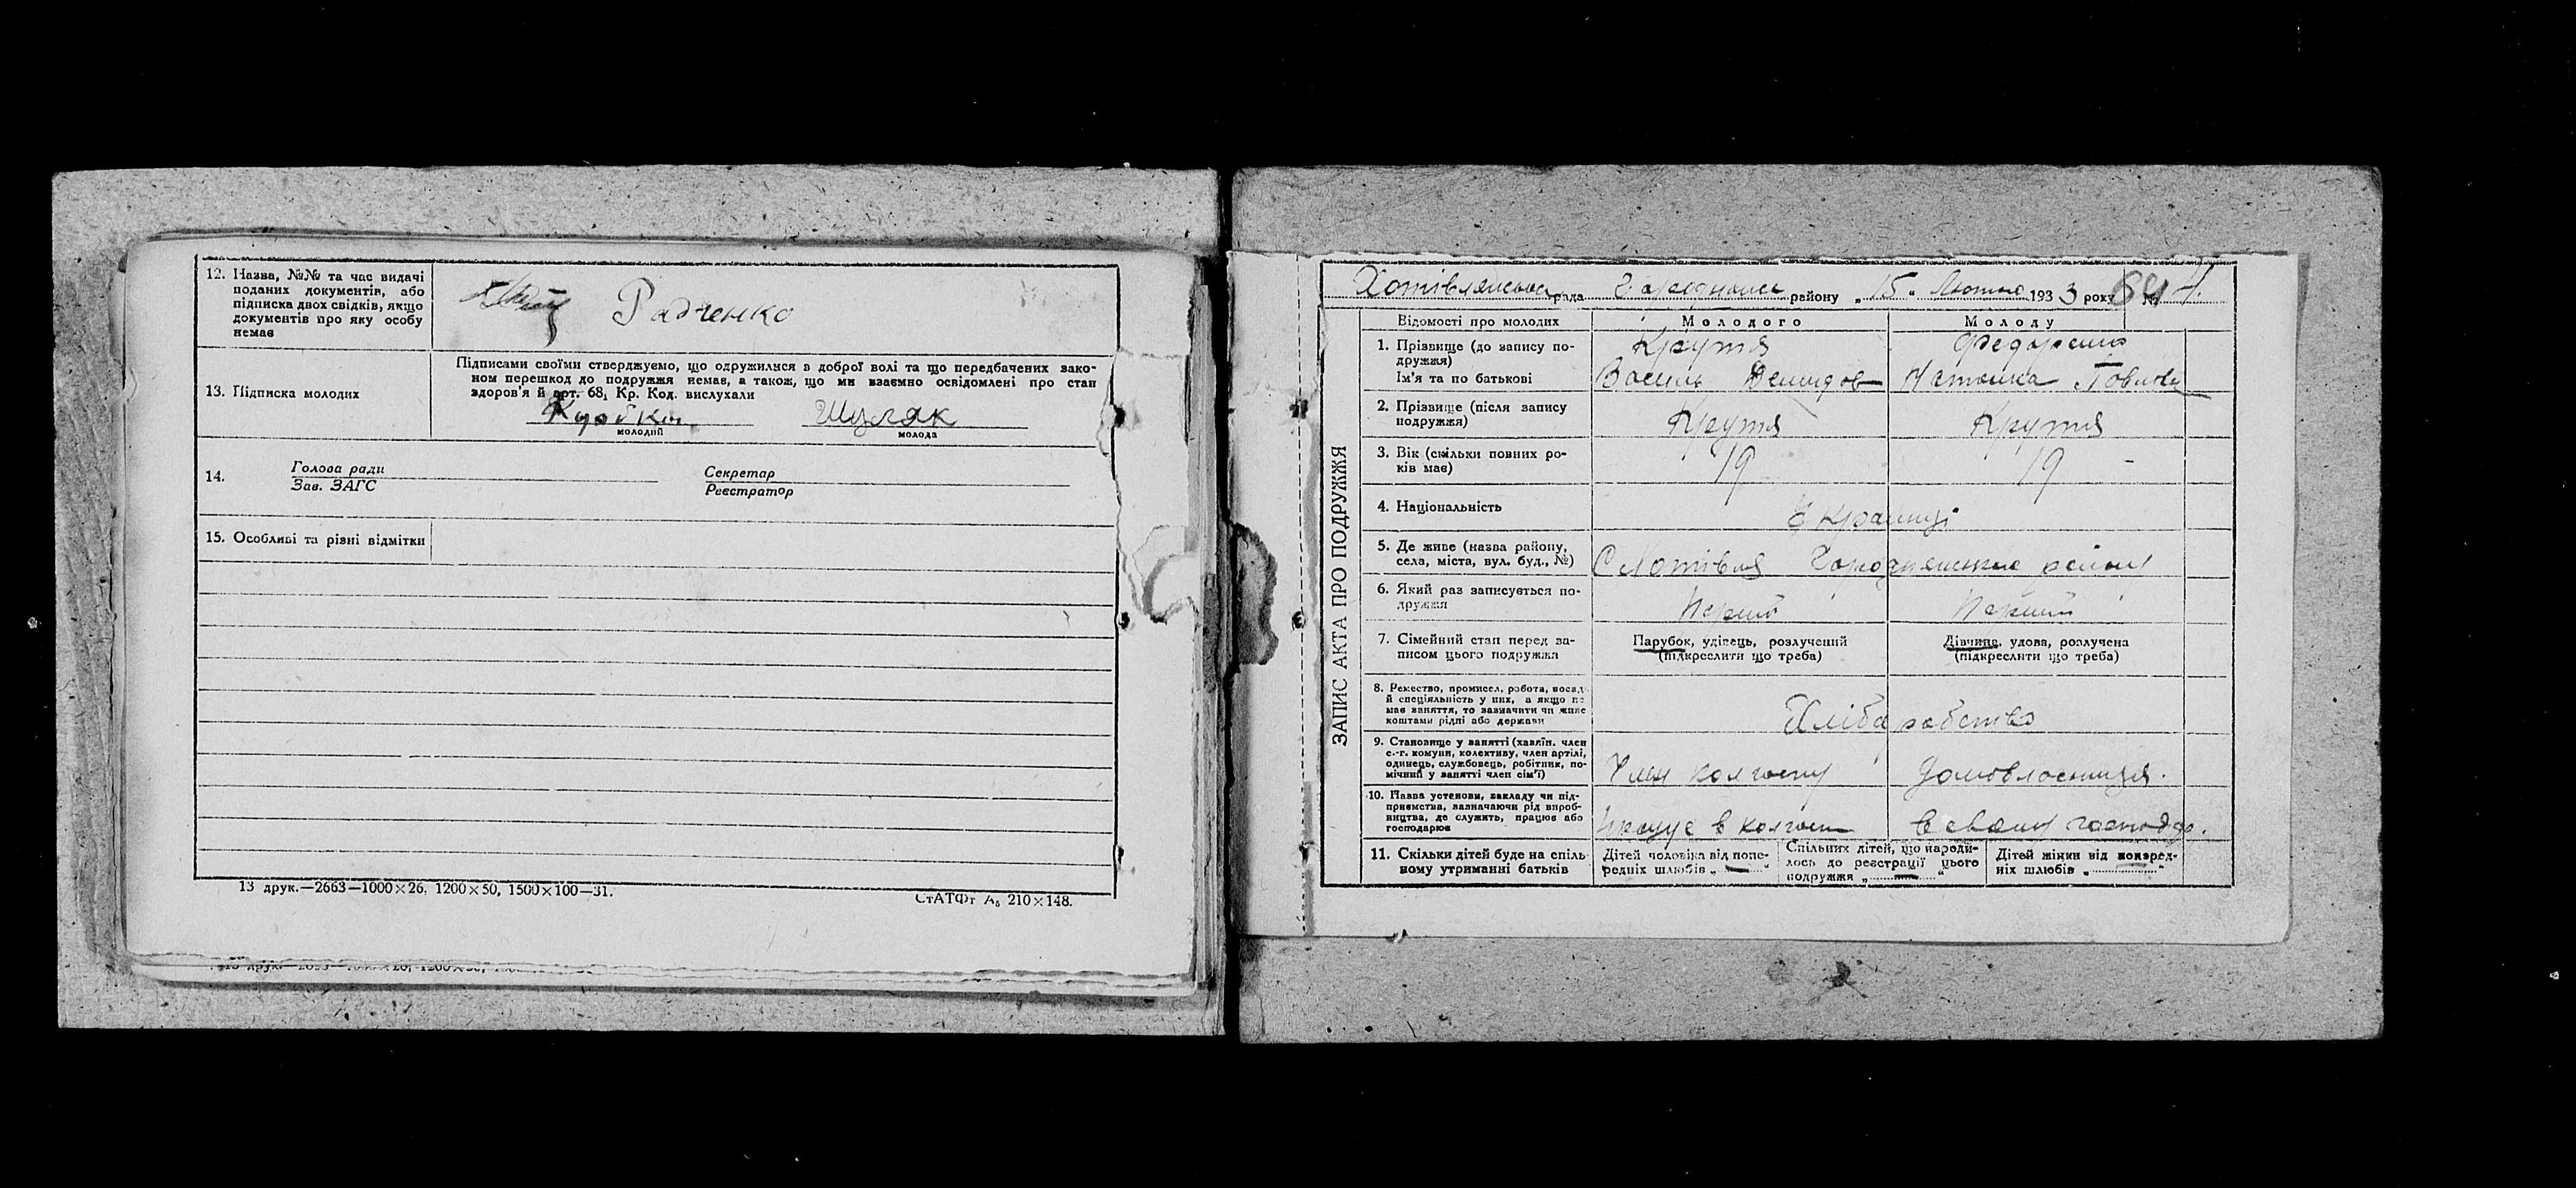 12. Назва, №№ та час видачі
поданих документів, або
підписка двох свідків, якщо
документів про яку особу
немає
Радченко
13. Підписка молодих
Підписами своїми стверджуємо, що одружилися з доброї волі та що передбачених зако-
ном перешкод до подружжя немає, а також, що ми взаємно освідомлені про стан
здоров'я й арт. 68, Кр. Код. вислухали
Шуляк
молодий
молода
14.
Голова ради
Зав. ЗАГС
Секретар
Реєстратор
15. Особливі та різні відмітки
13 друк.—2663—1000×26, 1200×50, 1500×100—31.
СтАТФт А₅ 210×148.
Хотівлянська рада Городнянськ району „15" Лютого 1933 року №
ЗАПИС АКТА ПРО ПОДРУЖЖЯ
Відомості про молодих
Молодого
Молоду
1. Прізвище (до запису по-
дружжя)
Ім'я та по батькові
Крутя
Василь Демидов
Федоренко
Наталка Павлов
2. Прізвище (після запису
подружжя)
Крутя
Крутя
3. Вік (скільки повних ро-
ків має)
19
19
4. Національність
Українці
5. Де живе (назва району,
села, міста, вул. буд., №)
С Хотівля Городнянського району
6. Який раз записується по-
дружжя
Перший
Перший
7. Сімейний стан перед за-
писом цього подружжя
Парубок, удівець, розлучений
(підкреслити що треба)
Дівчина, удова, розлучена
(підкреслити що треба)
8. Ремество, промисел, робота, посад
й спеціяльність у них, а якщо не
має заняття, то зазначити чи живе
коштами рідні або держави
Хліборобство
9. Становище у занятті (хазяїн. член
с.-г. комуни, колективу, член артілі,
одинець, службовець, робітник, по-
мічний у занятті член сім'ї)
Член колгоспу
Домовласниця.
10. Назва установи, закладу чи під-
приємства, зазначаючи рід вироб-
ництва, де служить, працює або
господарює
Працує в колгосп
в своєму господар.
11. Скільки дітей буде на спіль-
ному утриманні батьків
Дітей чоловіка від попе-
редніх шлюбів „ — "
Спільних дітей, що народи-
лось до реєстрації цього
подружжя „ — "
Дітей жінки від поперед-
ніх шлюбів „ "